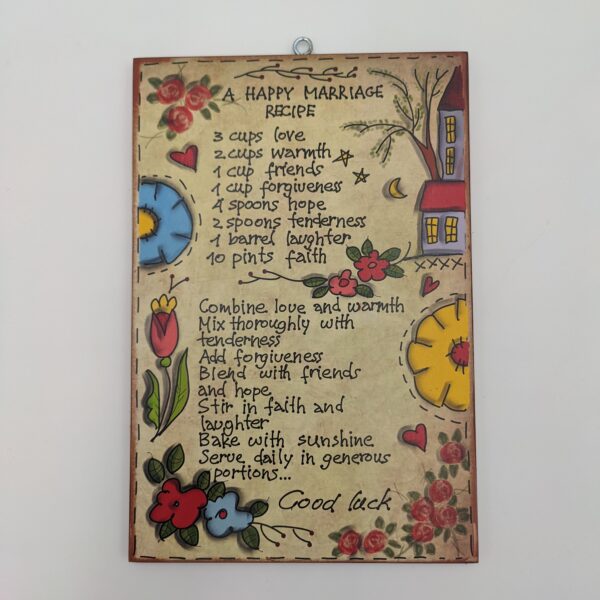 A HAPPY MARRIAGE
RECIPE
3 cups love
2 cups warmth
1 cup friends
1 cup forgiveness
4 spoons hope
2 spoons tenderness
1 barrel laughter
10 pints faith
Combine love and warmth
Mix thoroughly with
tenderness
Add forgiveness
Blend with friends
and hope
Stir in faith and
laughter
Bake with sunshine
Serve daily in generous
portions...
Good luck